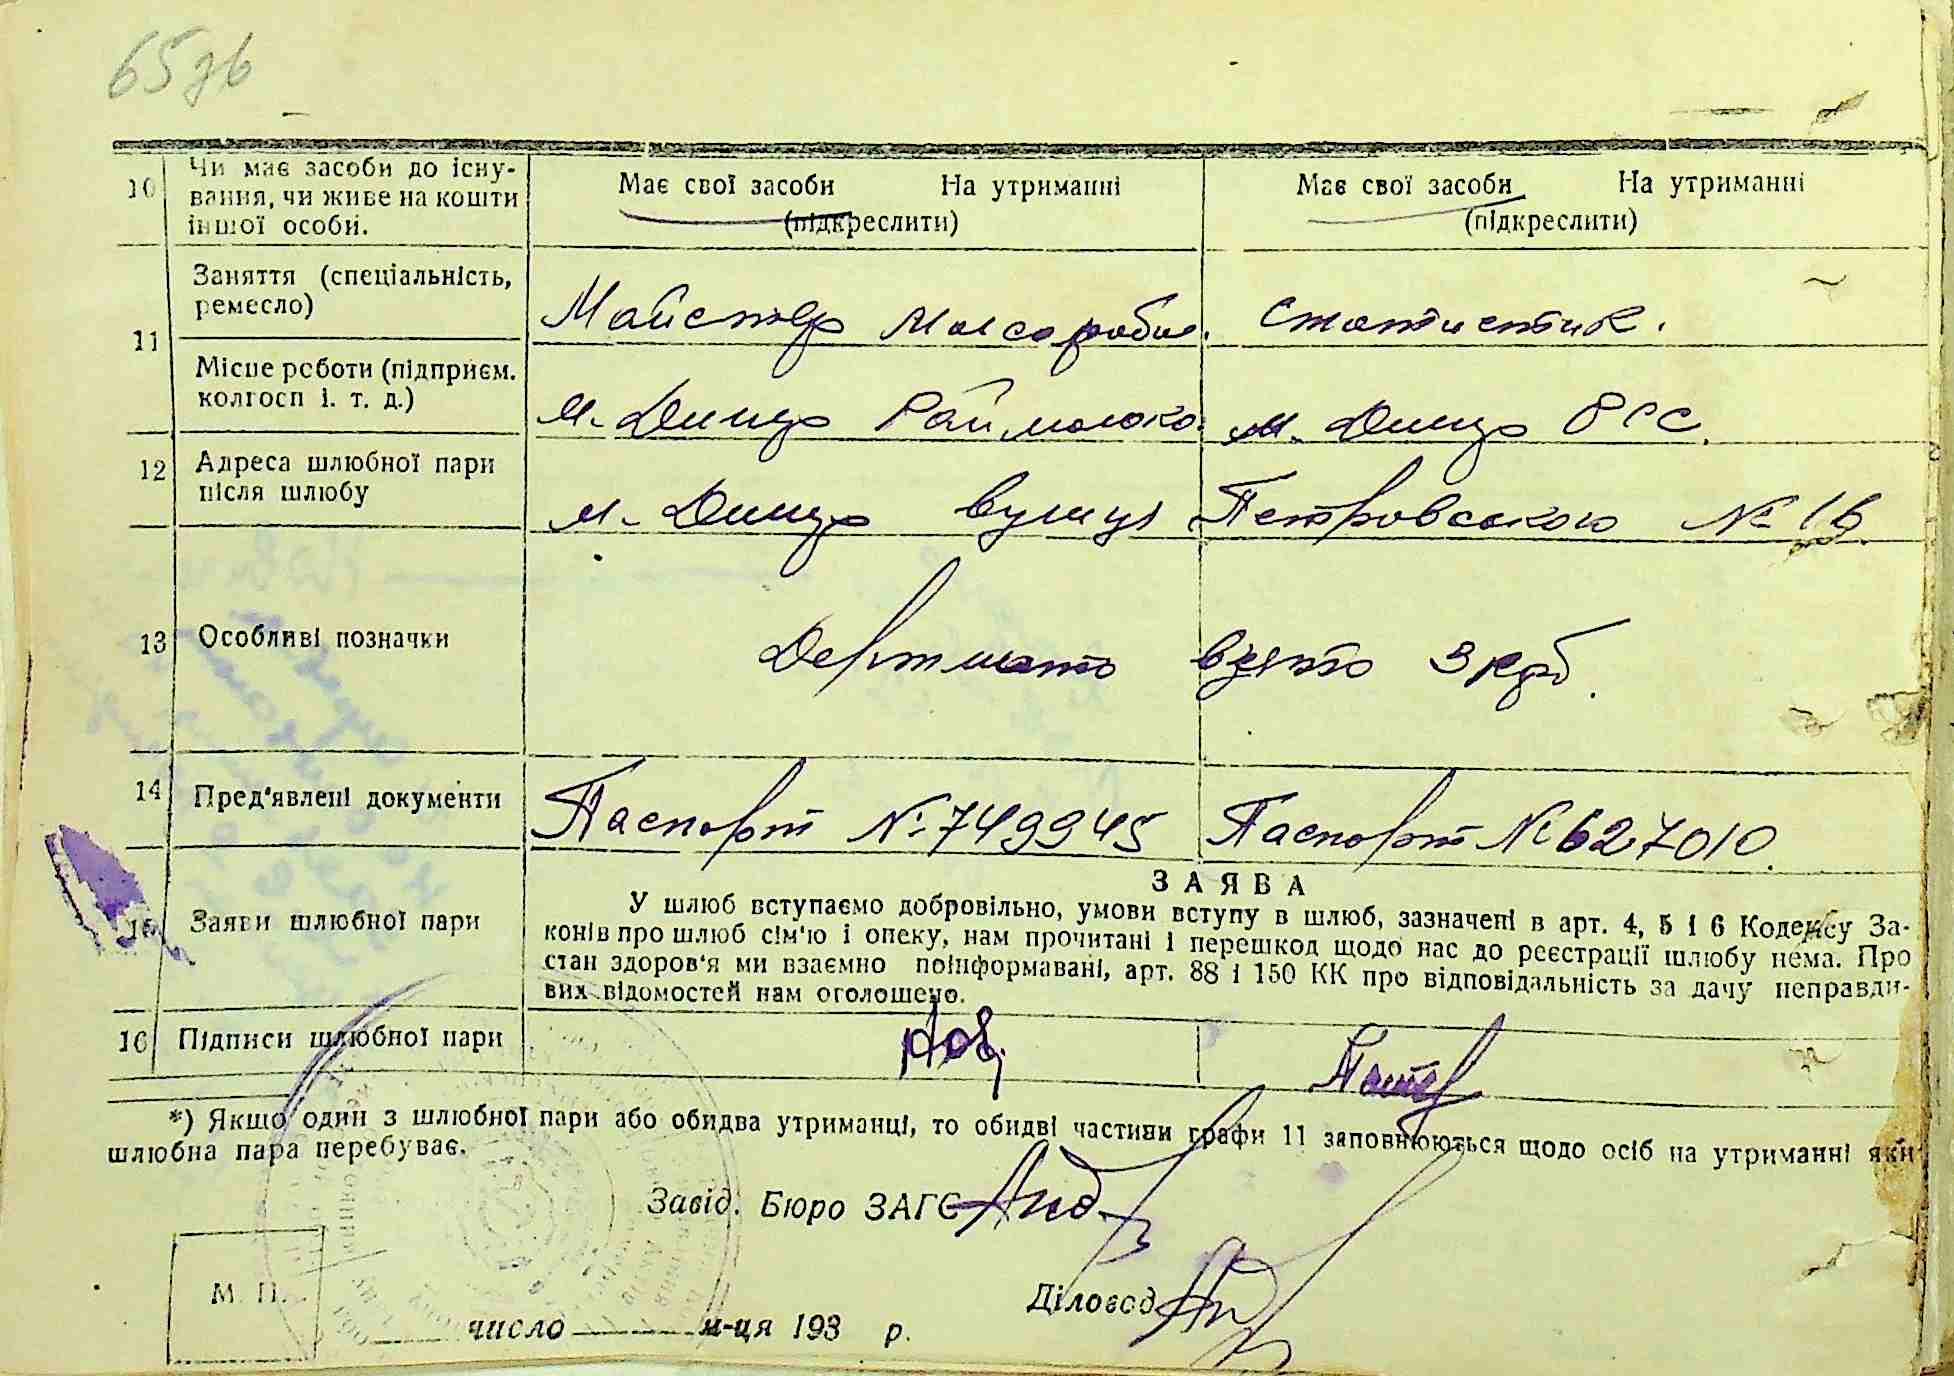 65зв
10 Чи має засоби до існу-
вання, чи живе на кошти
іншої особи.
Має свої засоби На утриманні
(підкреслити)
Має свої засоби На утриманні
(підкреслити)
11 Заняття (спеціальність,
ремесло)
Майстер Маслоробн. Статистик.
Місце роботи (підприєм.
колгосп і. т. д.)
м. Димер Раймолоко. м. Димер
12 Адреса шлюбної пари
після шлюбу
м. Димер вулиця Петровського № 16.
13 Особливі позначки
Держмито взято 3 крб.
14 Пред'явлені документи
Паспорт № 749945 Паспорт № 627010.
ЗАЯВА
15 Заяви шлюбної пари
У шлюб вступаємо добровільно, умови вступу в шлюб, зазначені в арт. 4, 5 і 6 Кодексу За-
конів про шлюб сім'ю і опеку, нам прочитані і перешкод щодо нас до реєстрації шлюбу нема. Про
стан здоров'я ми взаємно поінформавані, арт. 88 і 150 КК про відповідальність за дачу неправди-
вих відомостей нам оголошено.
16 Підписи шлюбної пари
*) Якщо один з шлюбної пари або обидва утриманці, то обидві частини графи 11 заповнюються щодо осіб на утриманні яких
шлюбна пара перебуває.
Завід. Бюро ЗАГС
М. П.
Діловод
число м-ця 193 р.